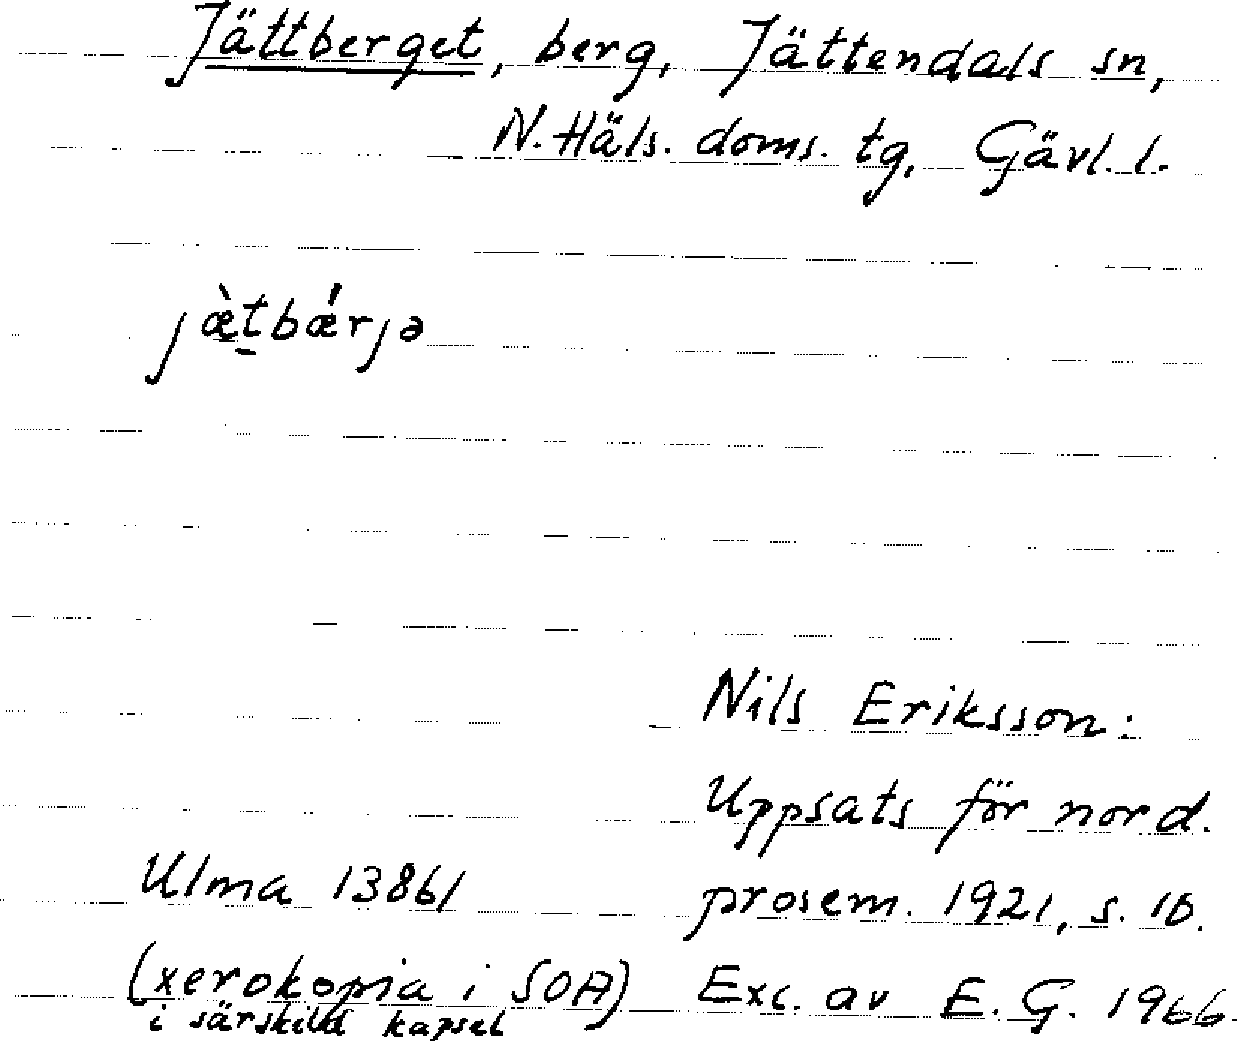 Jättberget, berg, Jättendals sn,
N. Häls. doms. tg, Gävl. l.
jæ̀tbǽrjə
Nils Eriksson:
Uppsats för nord.
Ulma 13861 prosem. 1921, s. 10.
(xerokopia i SOA) Exc. av E. G. 1966.
i särskild kapsel